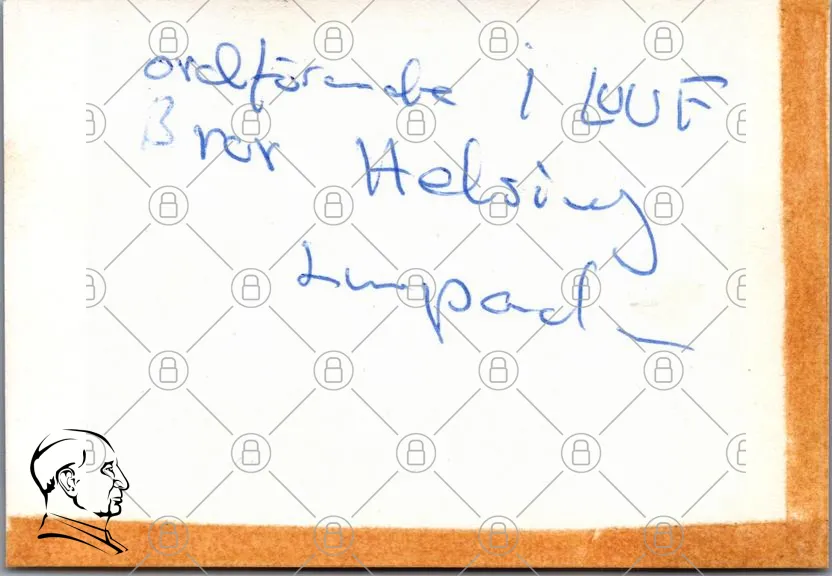 ordförande i LUUF
Bror Helsing
Limpad